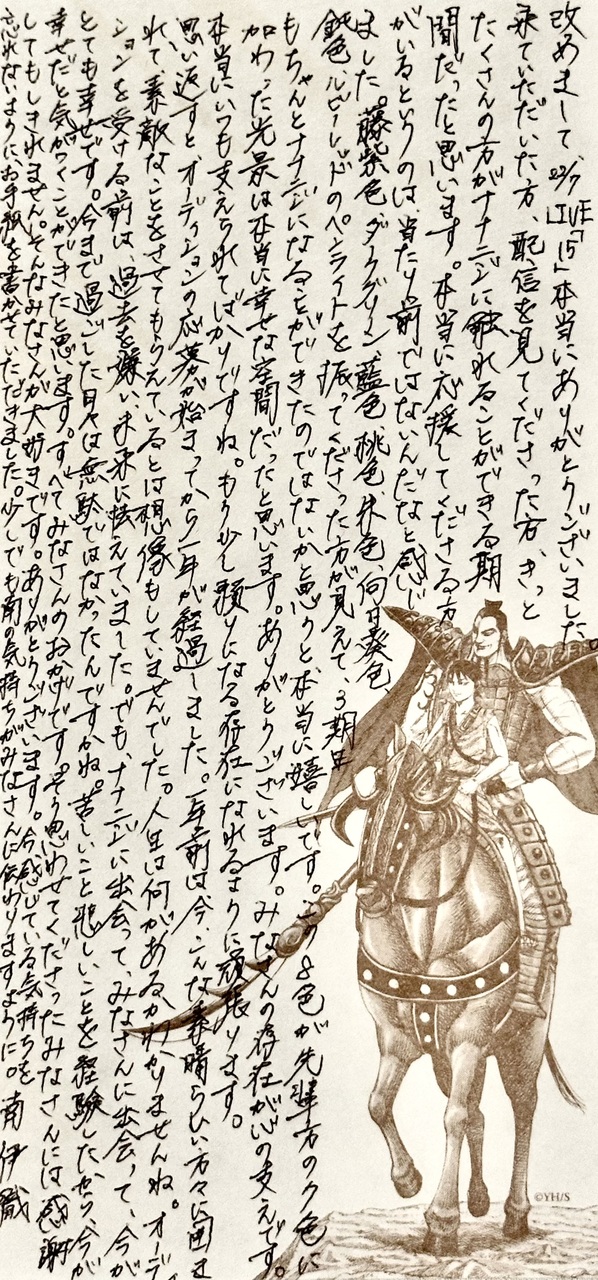 改めまして、22/7 LIVE「15」本当にありがとうございました。
来ていただいた方、配信を見てくださった方、きっと
たくさんの方がナナニジに触れることができる期
間だったと思います。本当に応援してくださる方
がいるというのは、当たり前ではないんだなと感じ
ました。藤紫色、ダークグリーン、藍色、桃色、朱色、向日葵色、
鈍色、ルビーレッドのペンライトを振ってくださった方が見えて、3期生
もちゃんとナナニジになることができたのではないかと思うと、本当に嬉しいです。この8色が先輩方の7色に
加わった光景は本当に幸せな空間だったと思います。ありがとうございます。みなさんの存在が心の支えです。
本当にいつも支えられてばかりですね。もう少し頼りになる存在になれるように頑張ります。
思い返すとオーディションの応募が始まってから一年が経過しました。一年前は今、こんな素晴らしい方々に囲ま
れて、素敵なことをさせてもらえているとは想像もしていませんでした。人生は何があるかわかりませんね。オーディ
ションを受ける前は、過去を嫌い、未来に怯えていました。でも、ナナニジに出会って、みなさんに出会って、今が
とても幸せです。今まで過ごした日々は無駄ではなかったんですかね。苦しいこと悲しいことを経験したから、今が
幸せだと気がつくことができたと思います。すべてみなさんのおかげです。そう思わせてくださったみなさんには感謝
してもしきれません。そんなみなさんが大好きです。ありがとうございます。今感じている気持ちを
忘れないように、お手紙を書かせていただきました。少しでも南の気持ちがみなさんに伝わりますように。南伊織
©YH/S